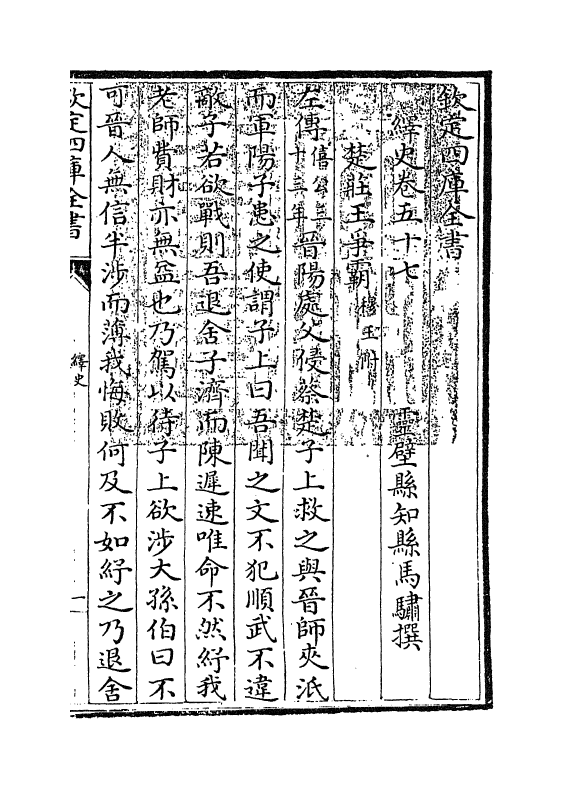 欽定四庫全書
繹史卷五十七
靈壁縣知縣馬驌撰
楚莊王爭霸穆王附
左傳僖公三十三年晉陽處父侵蔡楚子上救之與晉師夾泜
而軍陽子患之使謂子上曰吾聞之文不犯順武不違
敵子若欲戰則吾退舍子濟而陳遲速唯命不然紓我
老師費財亦無益也乃駕以待子上欲涉大孫伯曰不
可晉人無信半涉而薄我悔敗何及不如紓之乃退舍
欽定四庫全書
繹史
一